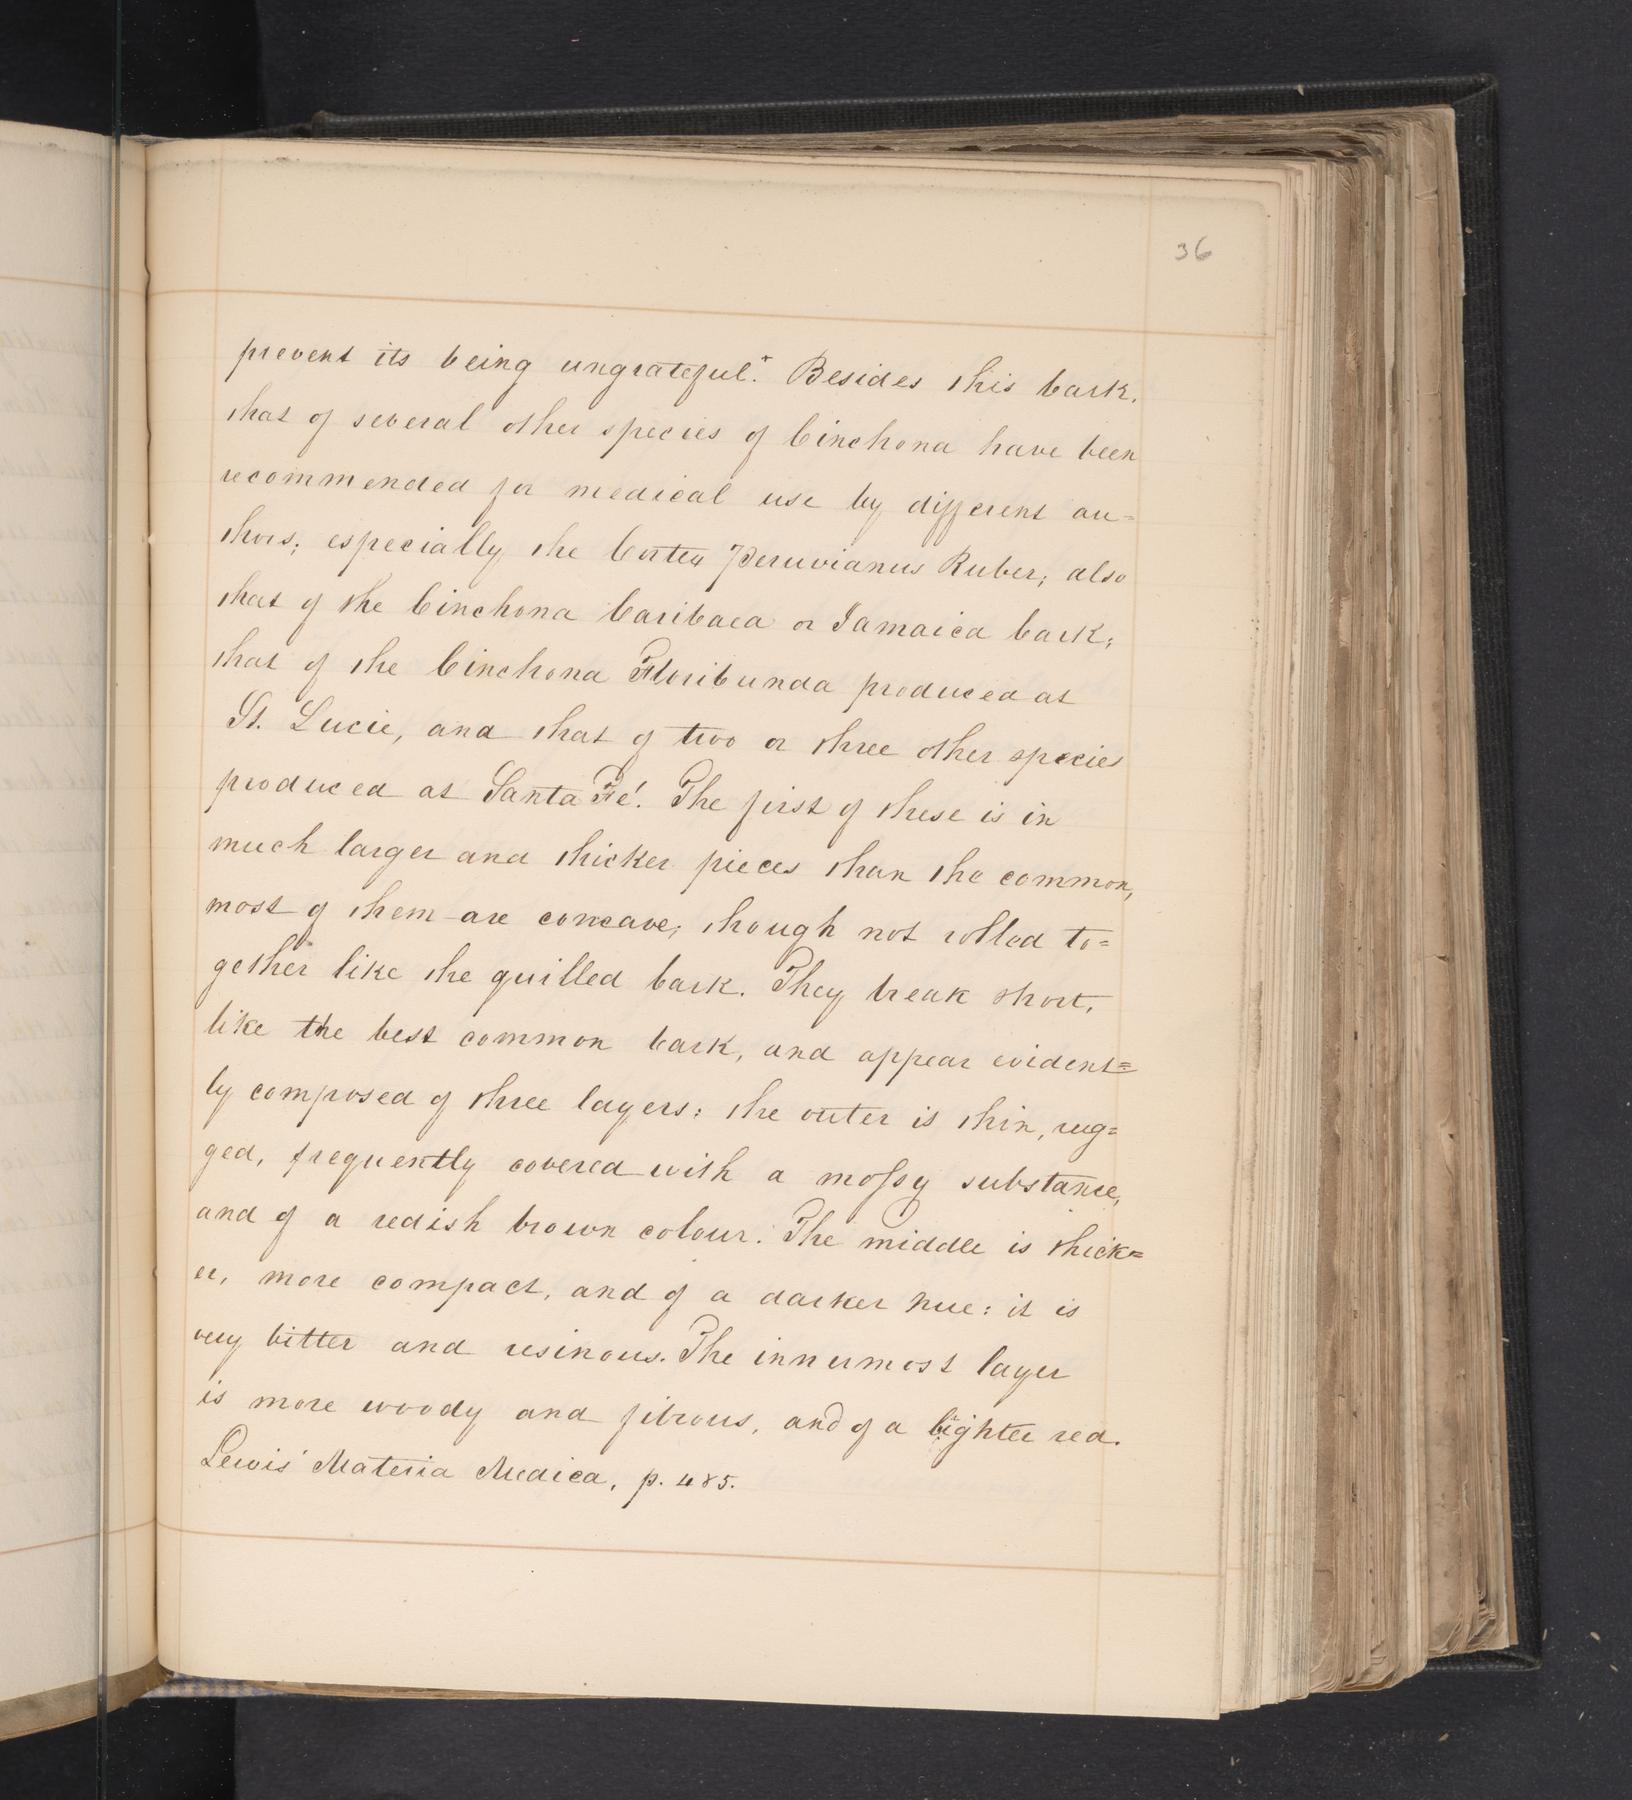 36
prevent its being ungrateful.* Besides this bark,
that of several other species of Cinchona have been
recommended for medical use by different au=
thors; especially the Cortex Peruvianus Ruber; also
that of the Cinchona Caribaea or Jamaica bark;
that of the Cinchona Floribunda produced at
St. Lucie, and that of two or three other species
produced at Santa Fé. The first of these is in
much larger and thicker pieces than the common,
most of them are concave; though not rolled to=
gether like the quilled bark. They break short,
like the best common bark, and appear evident=
ly composed of three layers: the outer is thin, rug=
ged, frequently covered with a moſsy substance,
and of a redish brown colour. The middle is thick=
er, more compact, and of a darker hue: it is
very bitter and resinous. The innermost layer
is more woody and fibrous, and of a lighter red.
Lewis' Materia Medica, p. 485.